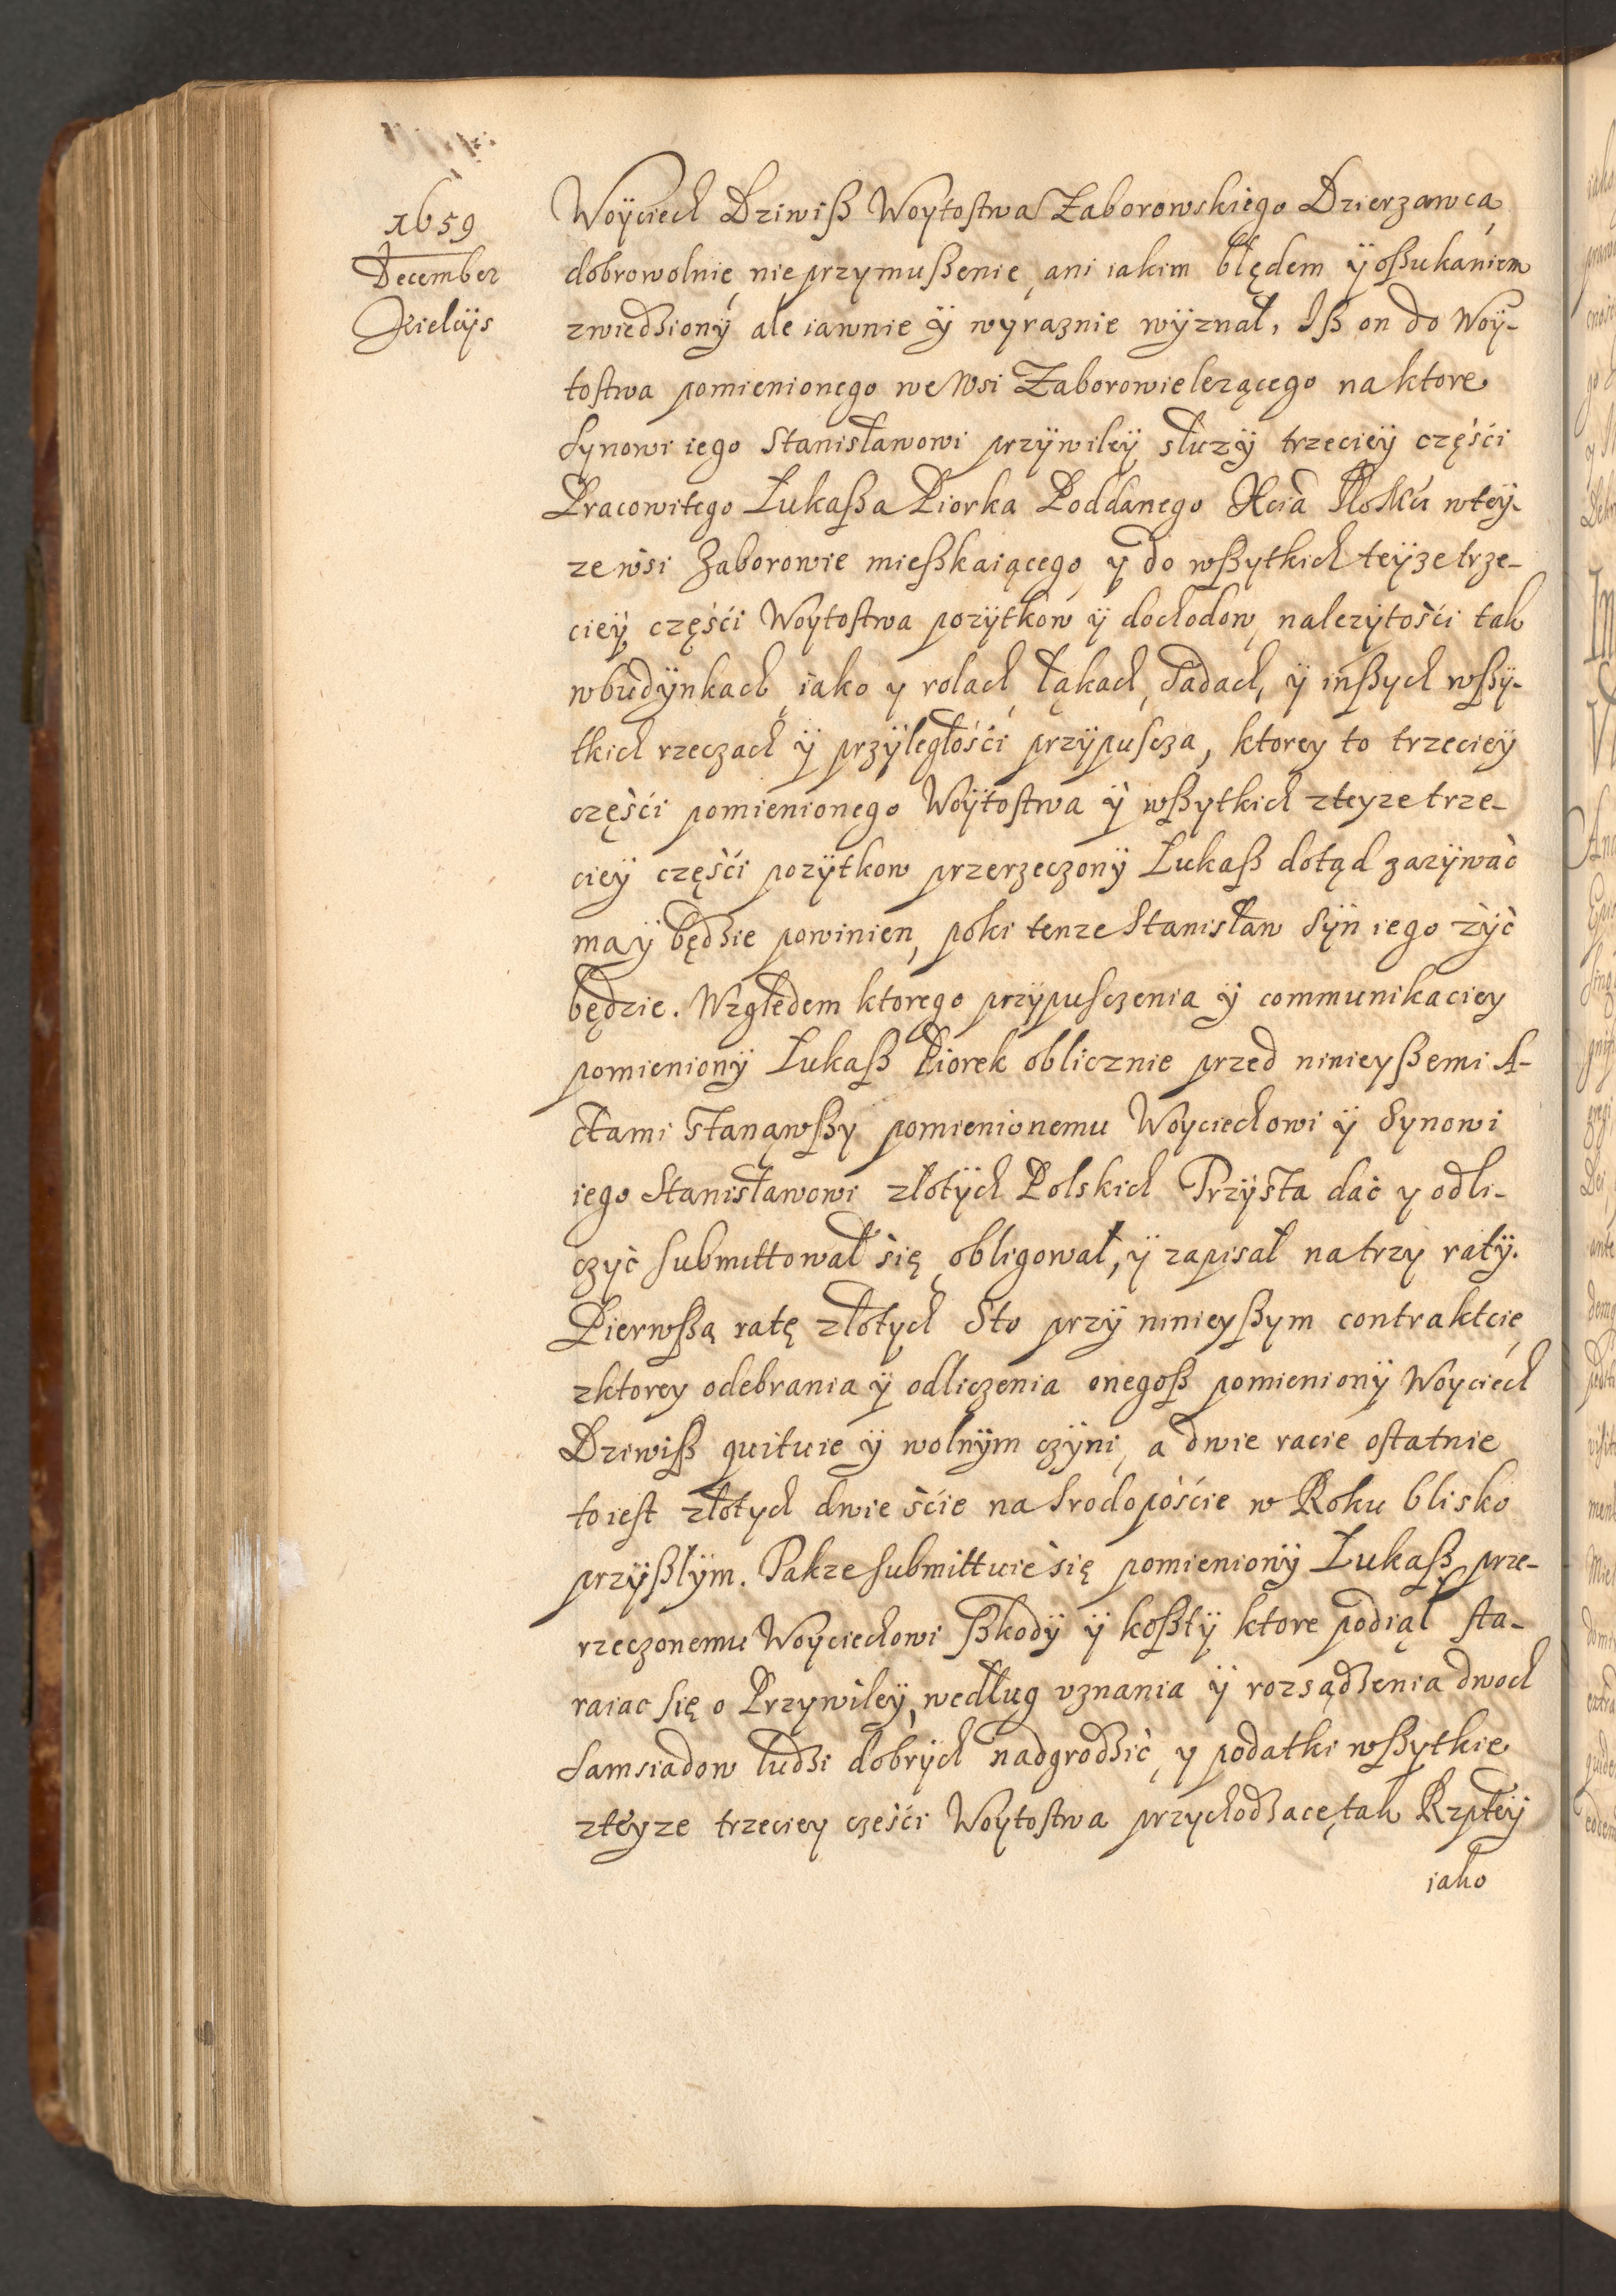 1659
December
Kielcÿs
Woÿciech Dziwiß Woytostwa Zaborowskiego Dzierzawca,
dobrowolnie, nie przymußenie, ani iakim błędem ÿ oßukaniem
zwiedziony ale iawnie ÿ wyraznie wÿznał, Iß on do Woÿ-
tostwa pomienionego we Wsi Zaborowie lezącego na ktore
Synowi iego Stanisławowi przÿwileÿ służÿ trzecieÿ częśći
Pracowitego Łukaßa Piorka Poddanego Xcia wteÿ-
ze wsi Zaborowie mießkaiącego y do wßytkich teÿze trze-
cieÿ częśći Woytostwa pozÿtkow ÿ dochodow, nalezÿtośći tak
w budÿnkach, iako y rolach, łąkach, Sadach, ÿ inßych wßÿ-
tkich rzeczach ÿ przÿległośći przÿpuscza, ktorey to trzecieÿ
częśći pomienionego Woÿtostwa ÿ wßytkich zteyze trze-
cieÿ częśći pozÿtkow przerzeczonÿ Łukaß dotąd zazÿwać
ma ÿ będzie powinien, poki tenze Stanisław Sÿn iego zÿć
będzie. Względem ktorego przÿpusczenia ÿ communikaciey
pomienionÿ Łukaß Piorek oblicznie przed ninieyßemi A-
ctami stanąwßy pomienionemu Woyciechowi ÿ Synowi
iego Stanisławowi złotÿch Polskich Trzÿsta dać y odli-
czyć submittował się, obligował, ÿ zapisał na trzy ratÿ.
Pierwßą ratę złotych Sto przÿ ninieyßym contraktcie,
zktorey odebrania ÿ odliczenia onegoß pomienionÿ Woyciech
Dziwiß quituie ÿ wolnÿm czÿni, a dwie racie ostatnie
to iest złotych dwie śćie na Srodopośćie w Roku blisko
przÿßłÿm. Takze submittuie się pomienionÿ Łukaß prze-
rzeczonemu Woyciechowi ßkodÿ ÿ koßtÿ ktore podiął sta-
raiac się o Przywileÿ, według vznania ÿ rozsądzenia dwoch
Samsiadow ludzi dobrÿch nadgrodzić, y podatki wßytkie
zteyze trzeciey cześći Woÿtostwa przychodzace, tak Rzpteÿ
iako